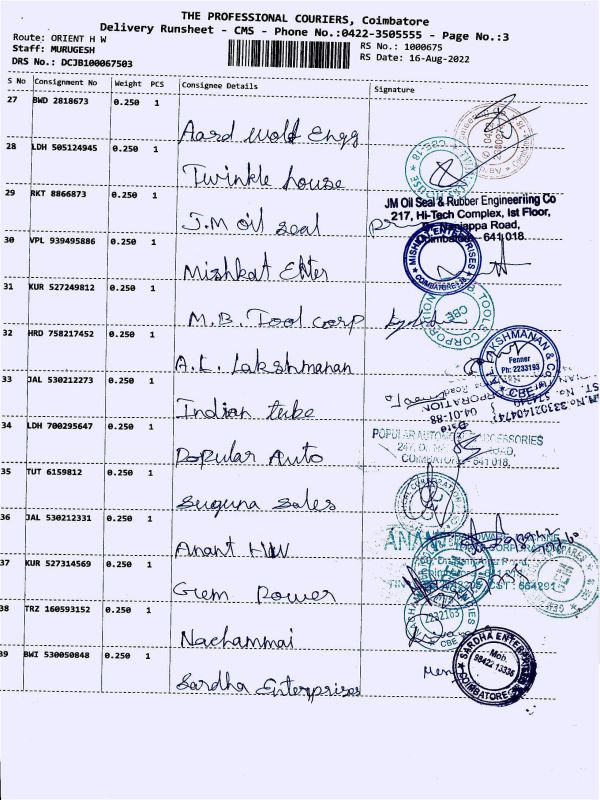 THE PROFESSIONAL COURIERS, Coimbatore
Delivery Runsheet - CMS - Phone No.:0422-3505555 - Page No.:3
Route: ORIENT H W
RS No.: 1000675
Staff: MURUGESH
RS Date: 16-Aug-2022
DRS No.: DCJB100067503
S No Consignment No Weight PCS Consignee Details Signature
27 BWD 2818673 0.250 1
Aard Wolf Engg
28 LDH 505124945 0.250 1
Twinkle house
29 RKT 8866873 0.250 1
J.M oil seal
JM Oil Seal & Rubber Engineeriing Co
217, Hi-Tech Complex, Ist Floor,
Nanjappa Road,
Coimbatore - 641 018.
30 VPL 939495886 0.250 1
Mishkat Enter
MISHKAT ENTERPRISES
COIMBATORE
31 KUR 527249812 0.250 1
M.B. Tool Corp
TOOLS CORPORATION
CBE
32 HRD 758217452 0.250 1
A.L. Lakshmanan
LAKSHMANAN & Co
Fenner
Ph: 2233193
CBE
33 JAL 530212273 0.250 1
Indian tube
34 LDH 700295647 0.250 1
Popular Auto
POPULAR AUTOMO ACCESSORIES
ROAD,
COIMBATORE - 641 018.
35 TUT 6159812 0.250 1
Suguna Sales
36 JAL 530212331 0.250 1
Anant H/W
ANAN
37 KUR 527314569 0.250 1
Gem Power
38 TRZ 160593152 0.250 1
Nachammai
2232163
CBE
39 BWI 530050848 0.250 1
Sardha Enterprises
SARDHA ENTERPRISES
Mob.
98422 13336
COIMBATORE